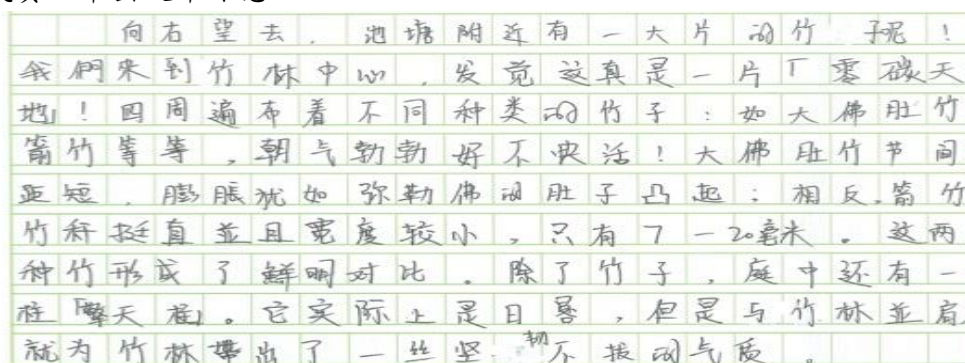 向右望去，池塘附近有一大片的竹子呢！
我們来到竹林中心，发觉这真是一片「零碳天
地」！四周遍布着不同种类的竹子：如大佛肚竹
箭竹等等，朝气勃勃好不快活！大佛肚竹节间
距短，膨脹犹如弥勒佛的肚子凸起；相反，箭竹
竹秆挺直並且宽度较小，只有7-20毫米。这两
种竹形成了鲜明对比。除了竹子，庭中还有一
柱「擎天柱」。它实际上是日晷，但是与竹林並肩
就为竹林帶出了一丝坚韧不拔的气质。